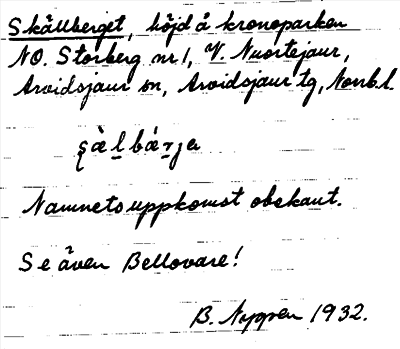 Skällberget, höjd å kronoparken
NO. Storberg nr 1, V. Nuortejaur,
Arvidsjaur sn, Arvidsjaur tg, Norrb. l.
şä̀l̲bár̲ja
Namnets uppkomst obekant.
Se även Bellovare!
B. Nygren 1932.